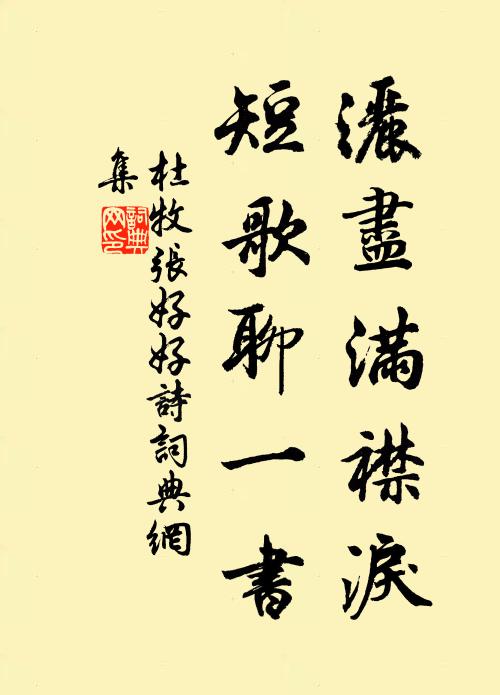 灑盡滿襟淚
短歌聊一書
杜牧張好好詩詞典網
集
詞典網印